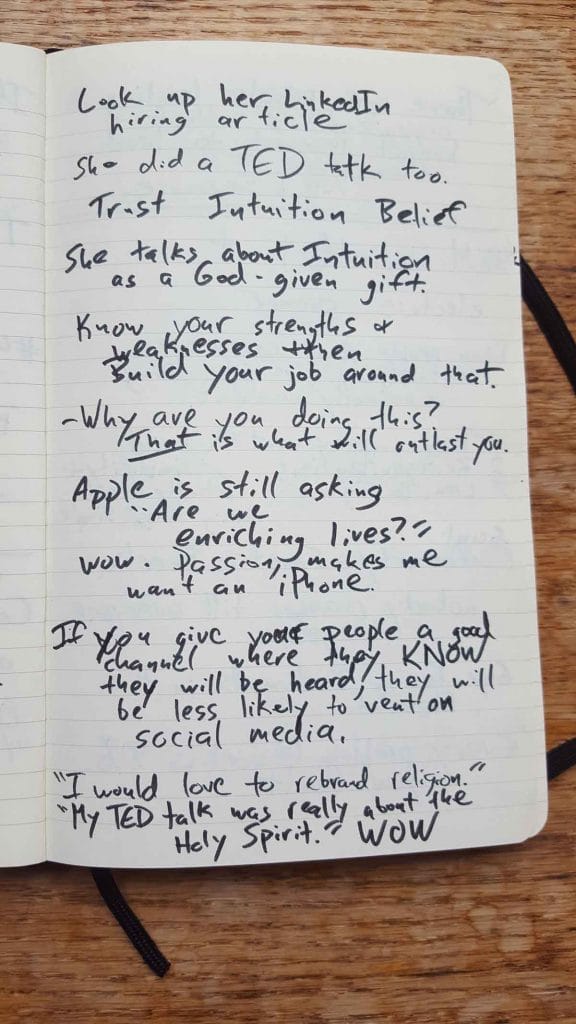 Look up her LinkedIn
hiring article
She did a TED talk too.
Trust Intuition Belief
She talks about Intuition
as a God-given gift.
Know your strengths &
weaknesses then
Build your job around that.
-Why are you doing this?
That is what will outlast you.
Apple is still asking
"Are we
enriching lives?"
wow. Passion, makes me
want an iPhone.
If you give your people a good
channel where they KNOW
they will be heard, they will
be less likely to vent on
social media.
"I would love to rebrand religion."
"My TED talk was really about the
Holy Spirit." WOW